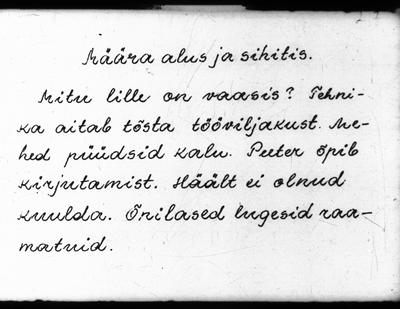 Määra alus ja sihitis.
Mitu lille on vaasis? Tehni-
ka aitab tõsta tööviljakust. Me-
hed püüdsid kalu. Peeter õpib
kirjutamist. Häält ei olnud
kuulda. Õpilased lugesid raa-
matuid.